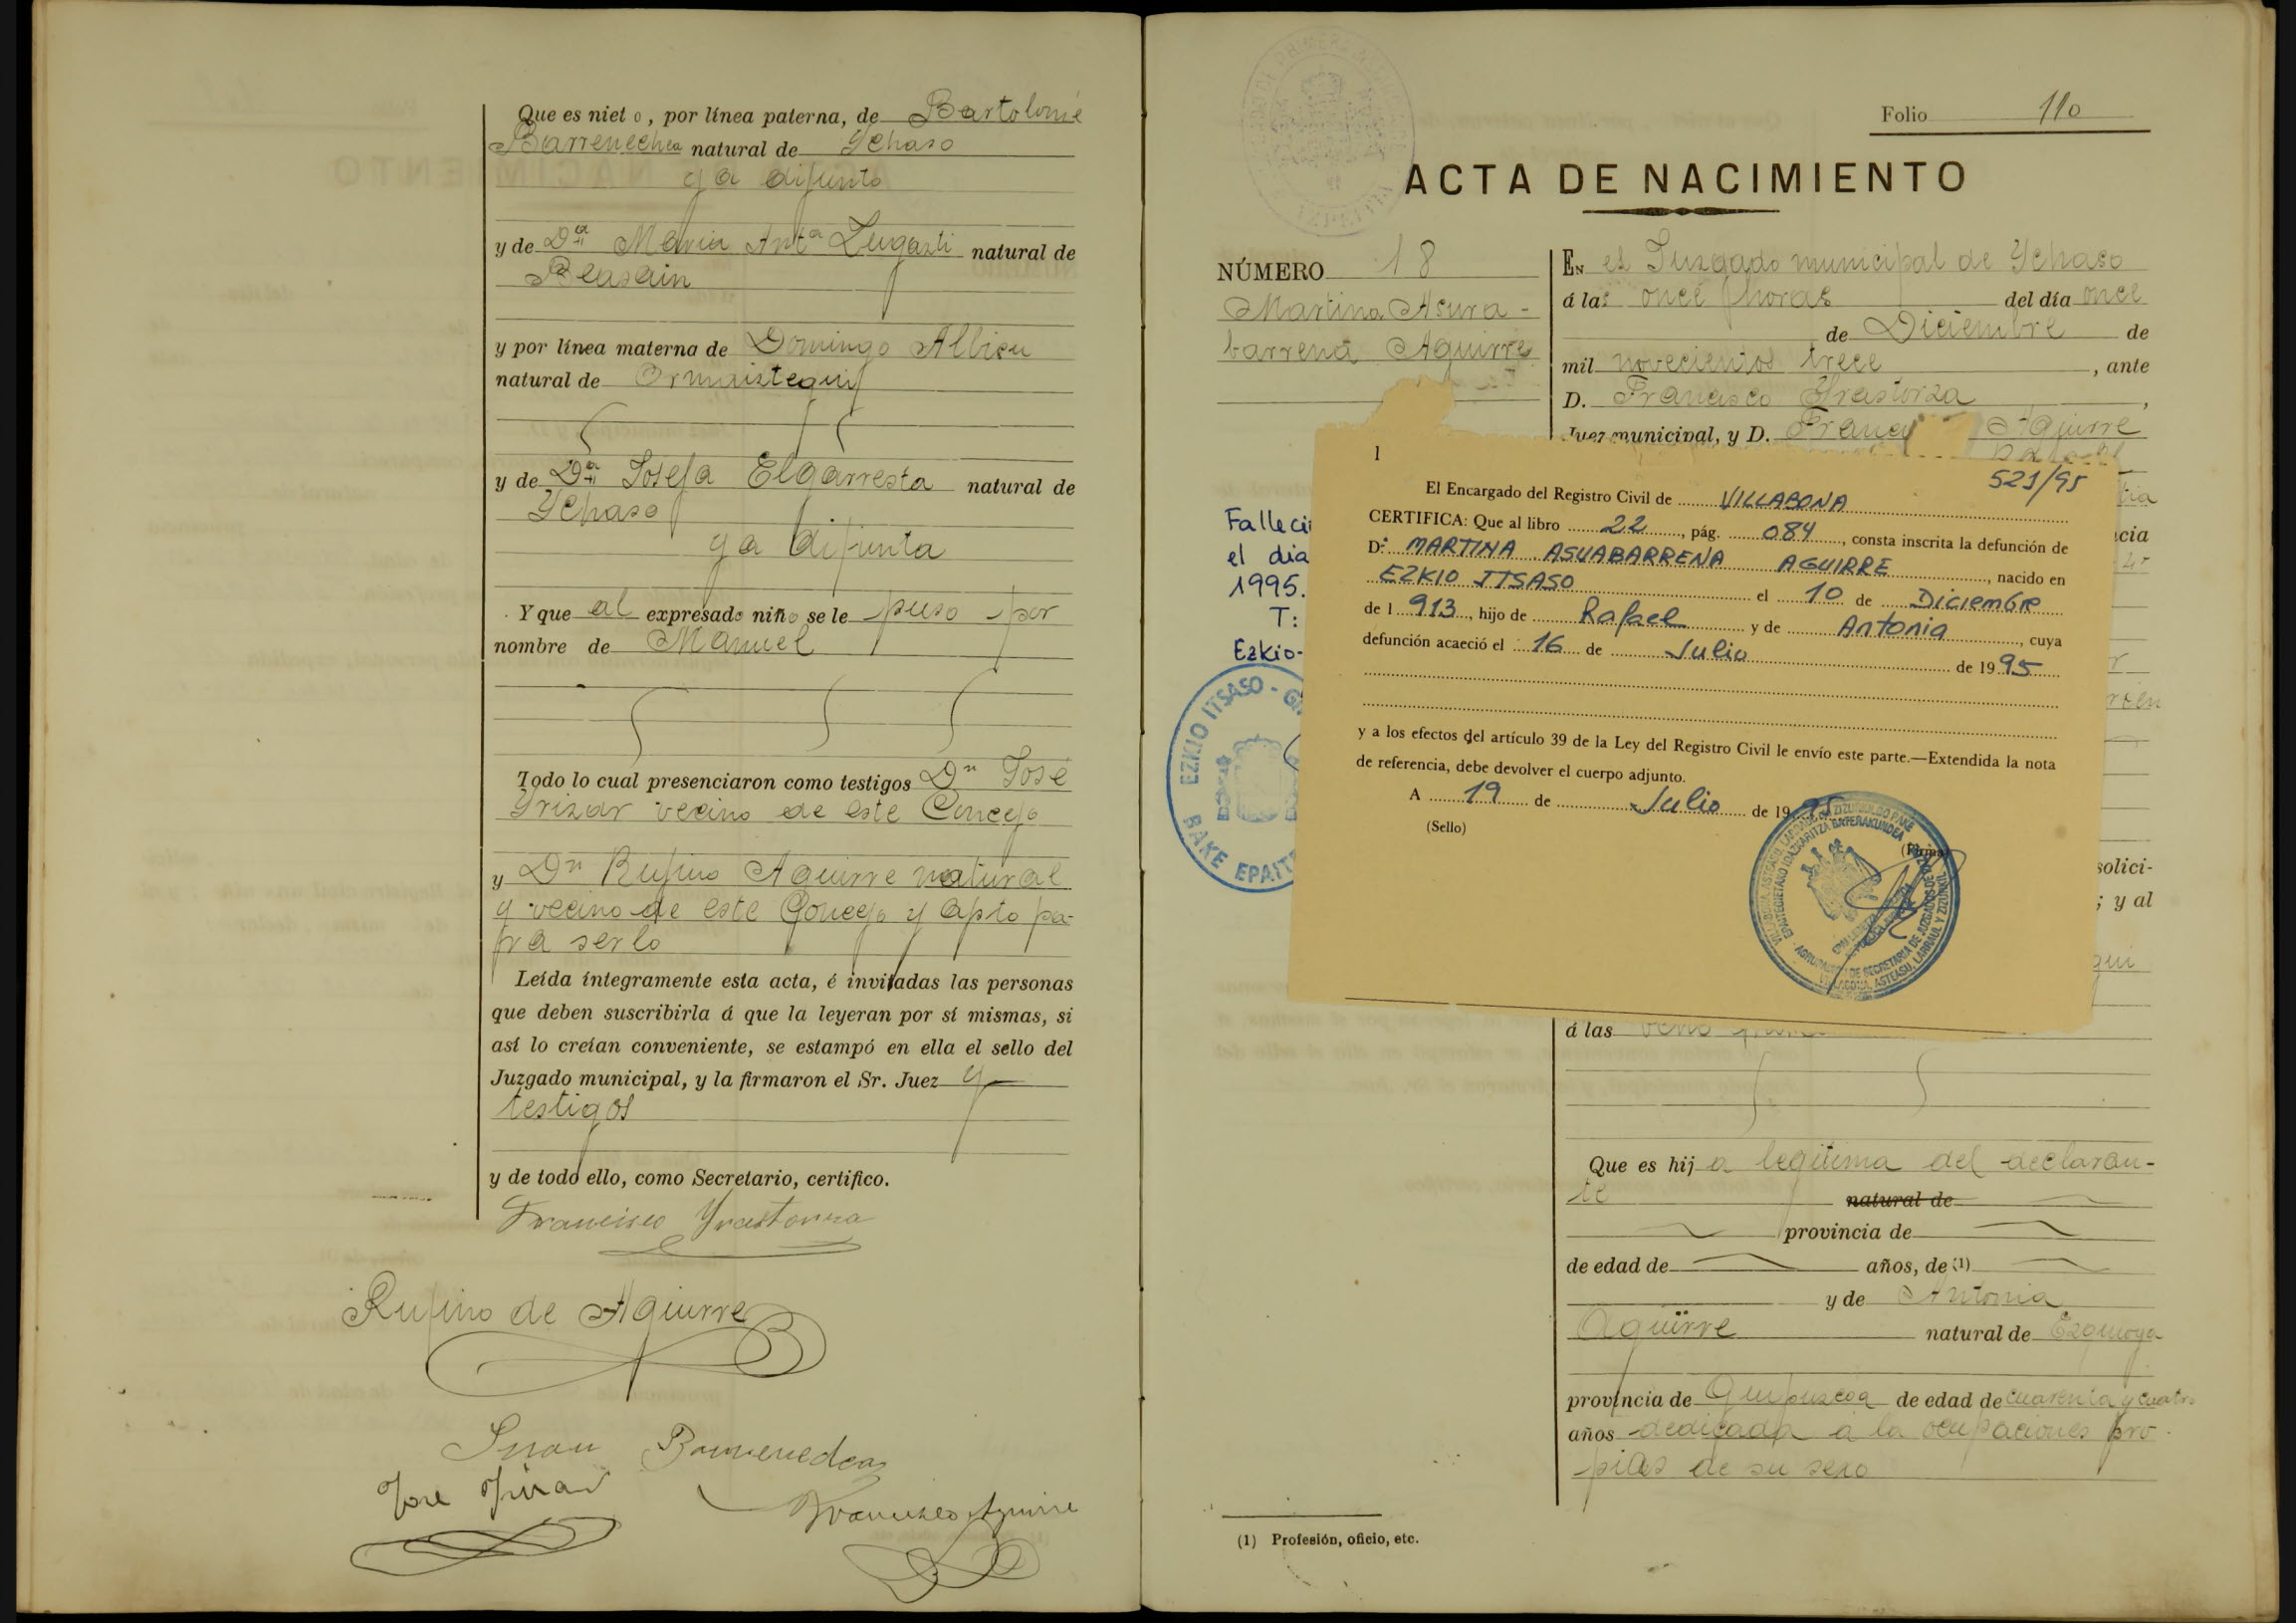 Que es nieto, por línea paterna, de Bartolomé
Barrenechea natural de Ychaso
ya difunto
y de Dª Maria Antª Zugasti natural de
Beasain
y por línea materna de Domingo Albisu
natural de Ormaiztegui
y de Dª Josefa Elgarresta natural de
Ychaso
ya difunta
Y que al expresado niño se le puso por
nombre de Manuel
Todo lo cual presenciaron como testigos Dn José
Yrizar vecino de este Concejo
y Dn Rufino Aguirre natural
y vecino de este Concejo y apto pa-
ra serlo
Leída íntegramente esta acta, é invitadas las personas
que deben suscribirla á que la leyeran por sí mismas, si
así lo creían conveniente, se estampó en ella el sello del
Juzgado municipal, y la firmaron el Sr. Juez y
testigos
y de todo ello, como Secretario, certifico.
Francisco Yrastorza
Rufino de Aguirre
Juan Barrenechea
José Yrizar
Francisco Aguirre
Folio 110
ACTA DE NACIMIENTO
NÚMERO 18
Martina Asura-
barrena Aguirre
En el Juzgado municipal de Ychaso
á las once horas del día once
de Diciembre de
mil novecientos trece, ante
D. Francisco Yrastorza,
Juez municipal, y D. Franc Aguirre
Falleci
el dia
1995.
T:
Ezkio-
EZKIO ITSASO - G
BAKE EPAIT
1
521/95
El Encargado del Registro Civil de VILLABONA
CERTIFICA: Que al libro 22, pág. 084, consta inscrita la defunción de
Dª MARTINA ASUABARRENA AGUIRRE, nacido en
EZKIO ITSASO el 10 de Diciembre
de 1913, hijo de Rafael y de Antonia, cuya
defunción acaeció el 16 de Julio de 1995
y a los efectos del artículo 39 de la Ley del Registro Civil le envío este parte.—Extendida la nota
de referencia, debe devolver el cuerpo adjunto.
A 19 de Julio de 1995
(Sello)
(Firma)
AGRUPACION DE SECRETARIA DE JUZGADOS DE
VILLABONA, ASTEASU, LARRAUL Y ZIZURKIL
ncia
solici-
; y al
á las ocho
Que es hija legítima del declaran-
te natural de
provincia de
de edad de años, de (1)
y de Antonia
Aguirre natural de Ezquioga
provincia de Guipuzcoa de edad de cuarenta y cuatro
años dedicada a la ocupaciones pro-
pias de su sexo
(1) Profesión, oficio, etc.